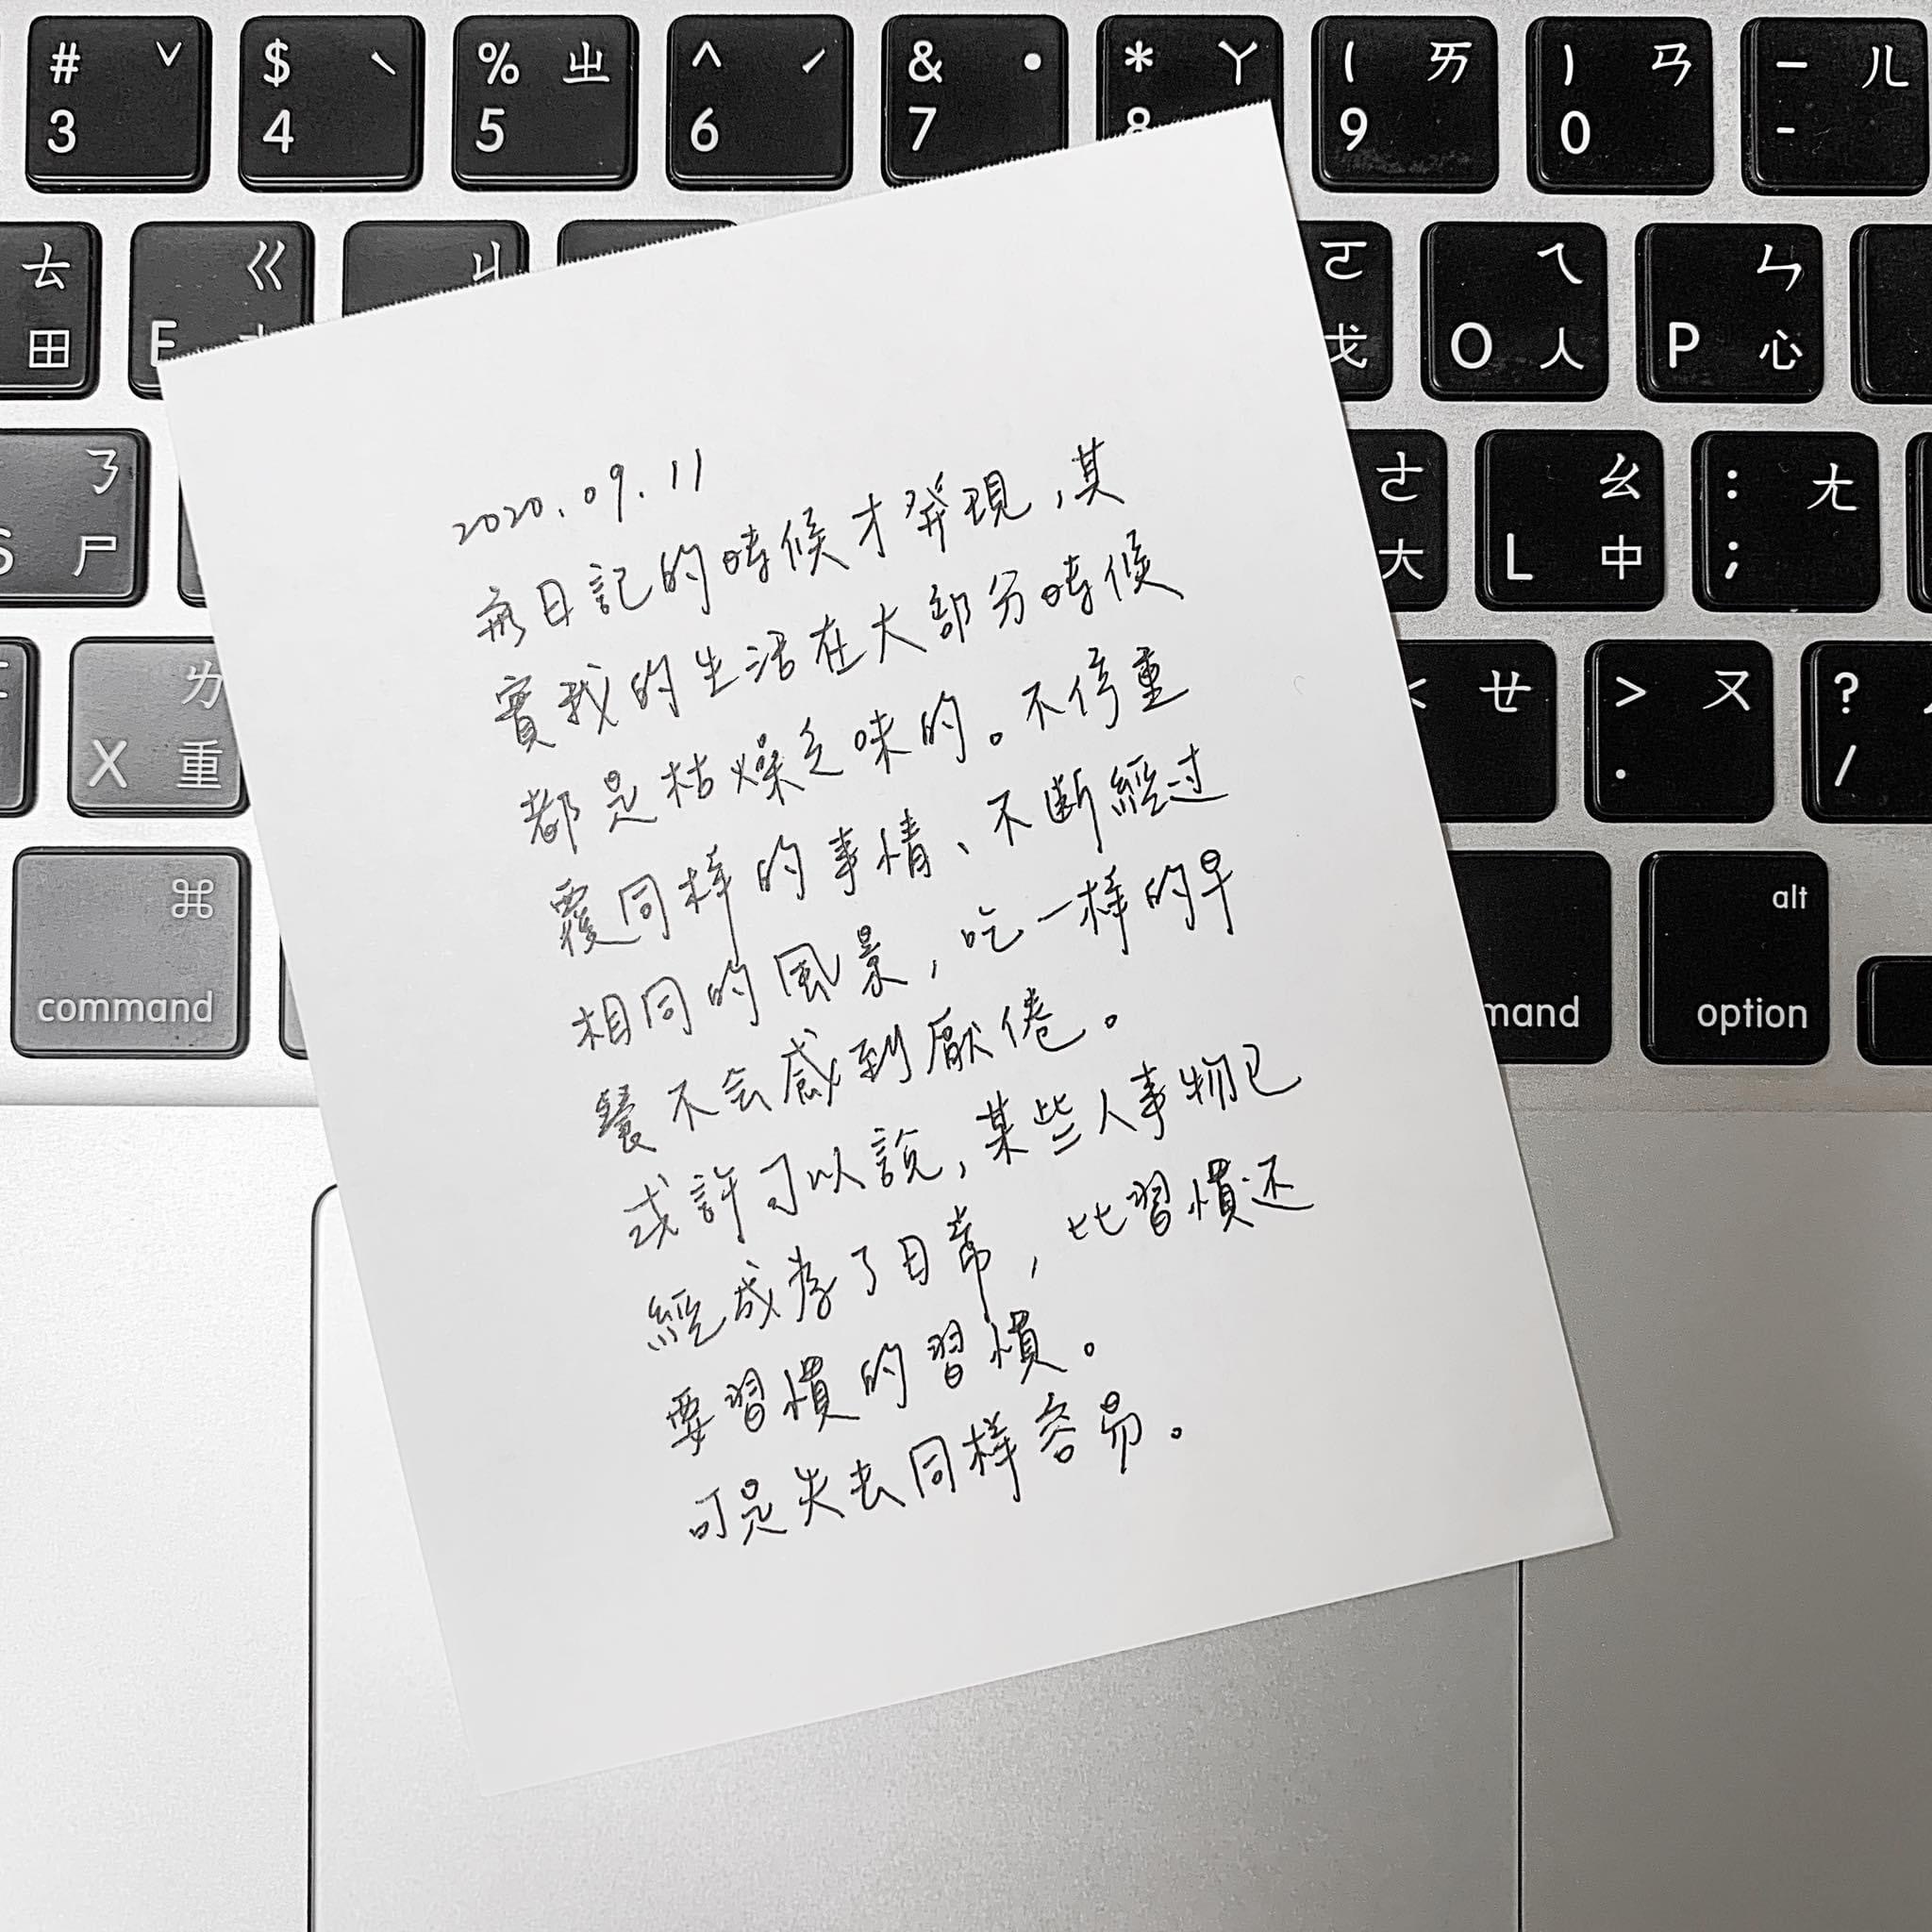 # ˇ $ ˋ % ㄓ ^ ˊ & ˙ * ㄚ ( ㄞ ) ㄢ — ㄦ
3 4 5 6 7 8 9 0 -
ㄊ ㄍ ㄐ ㄛ ㄟ ㄣ
田 E 戈 O 人 P 心
ㄋ ㄜ ㄠ : ㄤ
S 尸 大 L 中 ;
ㄌ < ㄝ > ㄡ ?
X 重 . /
⌘ alt
command mand option
2020.09.11
日記的時候才發現,其
實我的生活在大部分時候
都是枯燥乏味的。不停重
覆同样的事情、不斷經过
相同的風景,吃一样的早
餐不会感到厭倦。
或許可以說,某些人事物已
經成為了日常,比習慣还
要習慣的習慣。
可是失去同样容易。